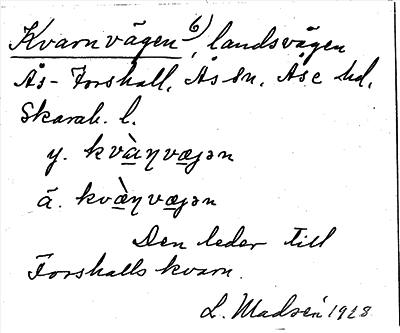 Kvarnvägen 6), landsvägen
Ås - Forshall, Ås sn, Åse hd,
Skarab. l.
y. kvàŋvæjən
ä. kvæ̀ŋvæjən
Den leder till
Forshalls kvarn.
L. Madsén 1928